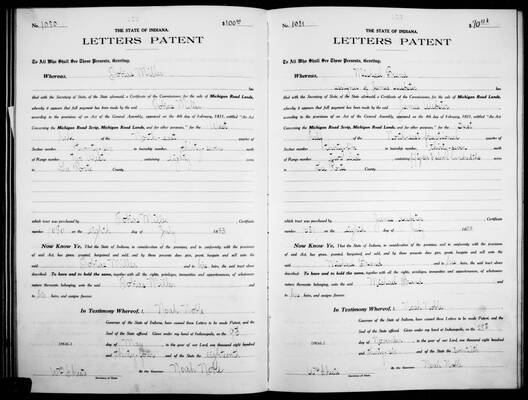 No. 1020
$100.00
THE STATE OF INDIANA.
LETTERS PATENT
To All Who Shall See These Presents, Greeting:
Whereas, Miller
has
filed with the Secretary of State, of the State aforesaid, a Certificate of the Commissioner, for the sale of Michigan Road Lands,
whereby it appears that full payment has been made by the said Miller
according to the provisions of an Act of the General Assembly, approved on the 4th day of February, 1831, entitled "An Act
Concerning the Michigan Road Scrip, Michigan Road Lands, and for other purposes," for the West
half of the quarter of
Section in township number thirty-seven north
of Range number , containing eighty
La Porte County,
which tract was purchased by Miller , Certificate
number 1020 on the eighth day of July 1833
Now Know Ye, That the State of Indiana, in consideration of the premises, and in conformity with the provisions
of said Act, has given, granted, bargained and sold, and by these presents does give, grant, bargain and sell unto the
said Miller and to his heirs, the said tract above
described. To have and to hold the same, together with all the rights, privileges, immunities and appurtenances, of whatsoever
nature thereunto belonging, unto the said Miller and
to his heirs, and assigns forever.
In Testimony Whereof, I Noah Noble
Governor of the State of Indiana, have caused these Letters to be made Patent, and the
Seal of the State affixed. Given under my hand at Indianapolis, on the
(SEAL) day of May in the year of our Lord, one thousand eight hundred
and and of the State the eighteenth
Wm Sheets By the Governor Noah Noble
Secretary of State.
No. 1021
THE STATE OF INDIANA.
LETTERS PATENT
To All Who Shall See These Presents, Greeting:
Whereas, Michael
assignee of James
has
filed with the Secretary of State, of the State aforesaid, a Certificate of the Commissioner, for the sale of Michigan Road Lands,
whereby it appears that full payment has been made by the said James
according to the provisions of an Act of the General Assembly, approved on the 4th day of February, 1831, entitled "An Act
Concerning the Michigan Road Scrip, Michigan Road Lands, and for other purposes," for the East
half quarter of
Section in township number thirty-seven north
of Range number , containing
La Porte County,
which tract was purchased by James , Certificate
number 1021 on the eighth day of July 1833
Now Know Ye, That the State of Indiana, in consideration of the premises, and in conformity with the provisions
of said Act, has given, granted, bargained and sold, and by these presents does give, grant, bargain and sell unto the
said Michael and to his heirs, the said tract above
described. To have and to hold the same, together with all the rights, privileges, immunities and appurtenances, of whatsoever
nature thereunto belonging, unto the said Michael and
to his heirs, and assigns forever.
In Testimony Whereof, I Noah Noble
Governor of the State of Indiana, have caused these Letters to be made Patent, and the
Seal of the State affixed. Given under my hand at Indianapolis, on the
(SEAL) day of November in the year of our Lord, one thousand eight hundred
and and of the State the
Wm Sheets By the Governor Noah Noble
Secretary of State.